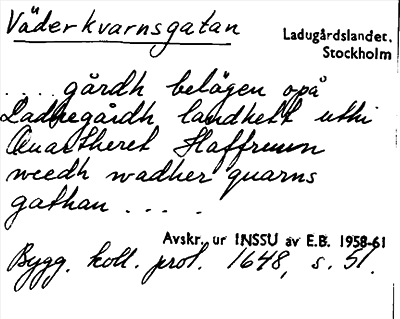 Väderkvarnsgatan
Ladugårdslandet.
Stockholm
.... gårdh belägen opå
Ladhegårdh landhett uthi
Quartheret Haffruun
weedh wadher quarns
gathan ....
Avskr. ur INSSU av E.B. 1958-61
Bygg. koll. prot. 1648, s. 51.